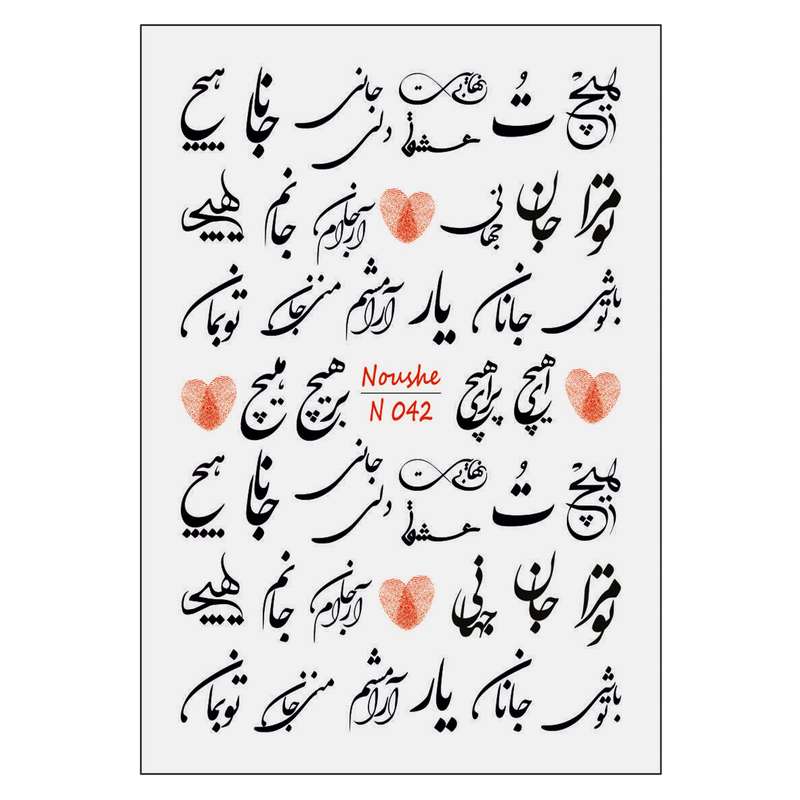 هیچ تُ بی‌نهایت عشق جانی دلی جانا هیچ
تو مرا جان جهانی آرام جان جانم هیچ
تو باشی جانان یار آرامشم منی جان تو بمان
هیچ بر هیچ Noushe پر هیچ هیچ
N 042
هیچ تُ بی‌نهایت عشق جانی دلی جانا هیچ
تو مرا جان جهانی آرام جان جانم هیچ
تو باشی جانان یار آرامشم منی جان تو بمان